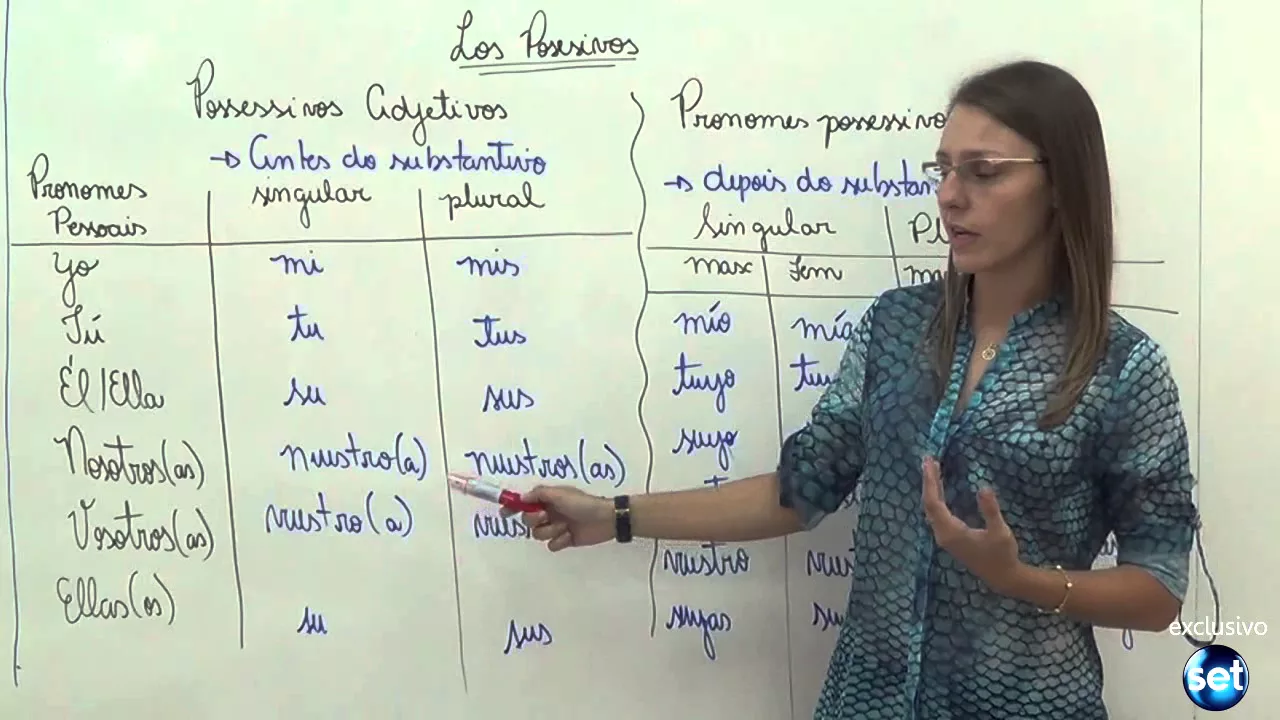 Los Posesivos
Possessivos Adjetivos
→ Antes do substantivo
Pronomes Pessoais singular plural
Yo mi mis
Tú tu tus
Él/Ella su sus
Nosotros(as) nuestro(a) nuestros(as)
Vosotros(as) vuestro(a)
Ellas(os) su sus
Pronomes
→ depois do
Singular
masc fem
mío mía
tuyo
suyo
vuestro
suyas
exclusivo
set